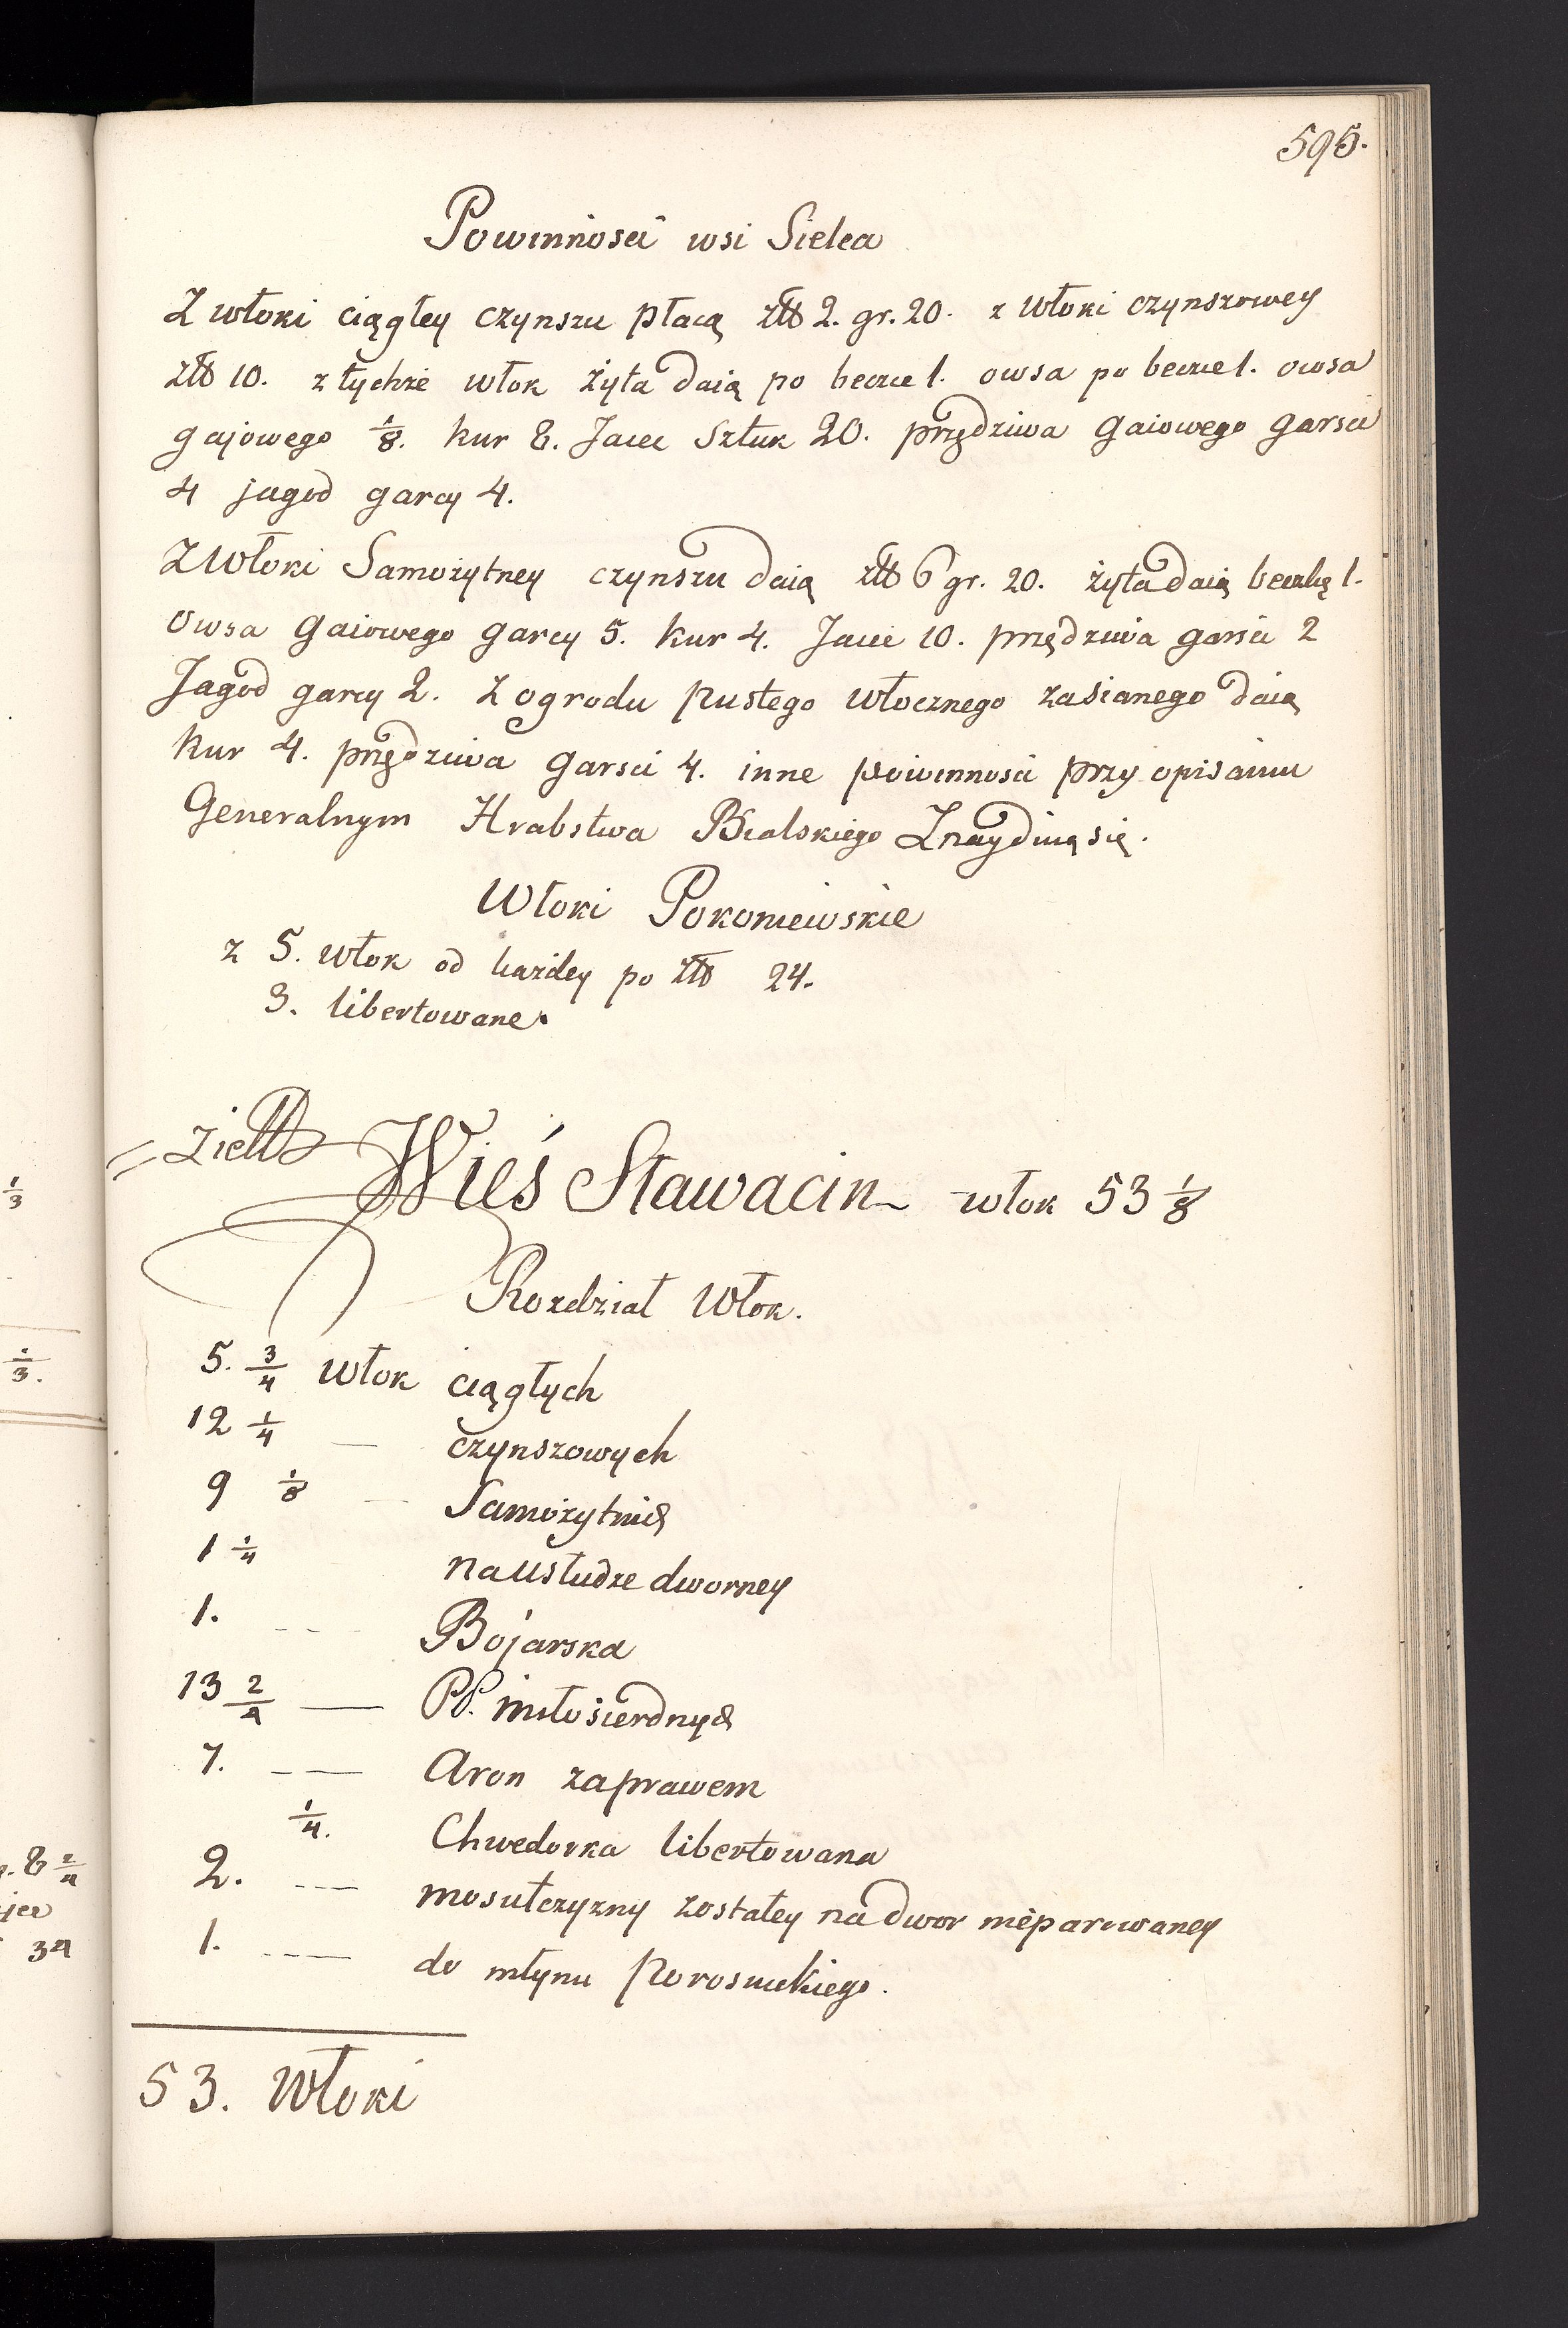 595.
Powinnosci wsi Sielca
Z włoki ciągłey czynszu płacą złł 2. gr. 20. z włoki czynszowey
złł 10. z tychże włok żyta daią po beczce 1. owsa po beczce 1. owsa
gajowego 1/8. kur 8. Jaiec Sztuk 20. przędziwa gaiowego garsci
4 jagod garcy 4.
Z włoki Samożytney czynszu daią złł 6 gr. 20. żyta daią beczkę 1.
Owsa gaiowego garcy 5. kur 4. Jaiec 10. przędziwa garsci 2
Jagod garcy 2. Z ogrodu pustego włocznego zasianego daią
kur 4. przędziwa garsci 4. inne powinnosci przy opisaniu
Generalnym Hrabstwa Bialskiego Znayduią się.
Włoki Pokoniewskie
z 5. włok od każdey po złł 24.
3. libertowane.
Wieś Sławacin włok 53 1/8
Rozdział Włok.
5. 3/4 włok ciągłych
12 1/4 — czynszowych
9 1/8 — Samożytnich
1 1/4 na usłudze dworney
1. --- Bojarska
13 2/4 — PP. miłosierdnych
7. -- Aron zaprawem
1/4. Chwedorka libertowana
2. --- mosulczyzny zostałey na dwor nieparowaney
1. --- do młynu Porosiuckiego.
53. Włoki
1/3
1/3.
8 2/4
34